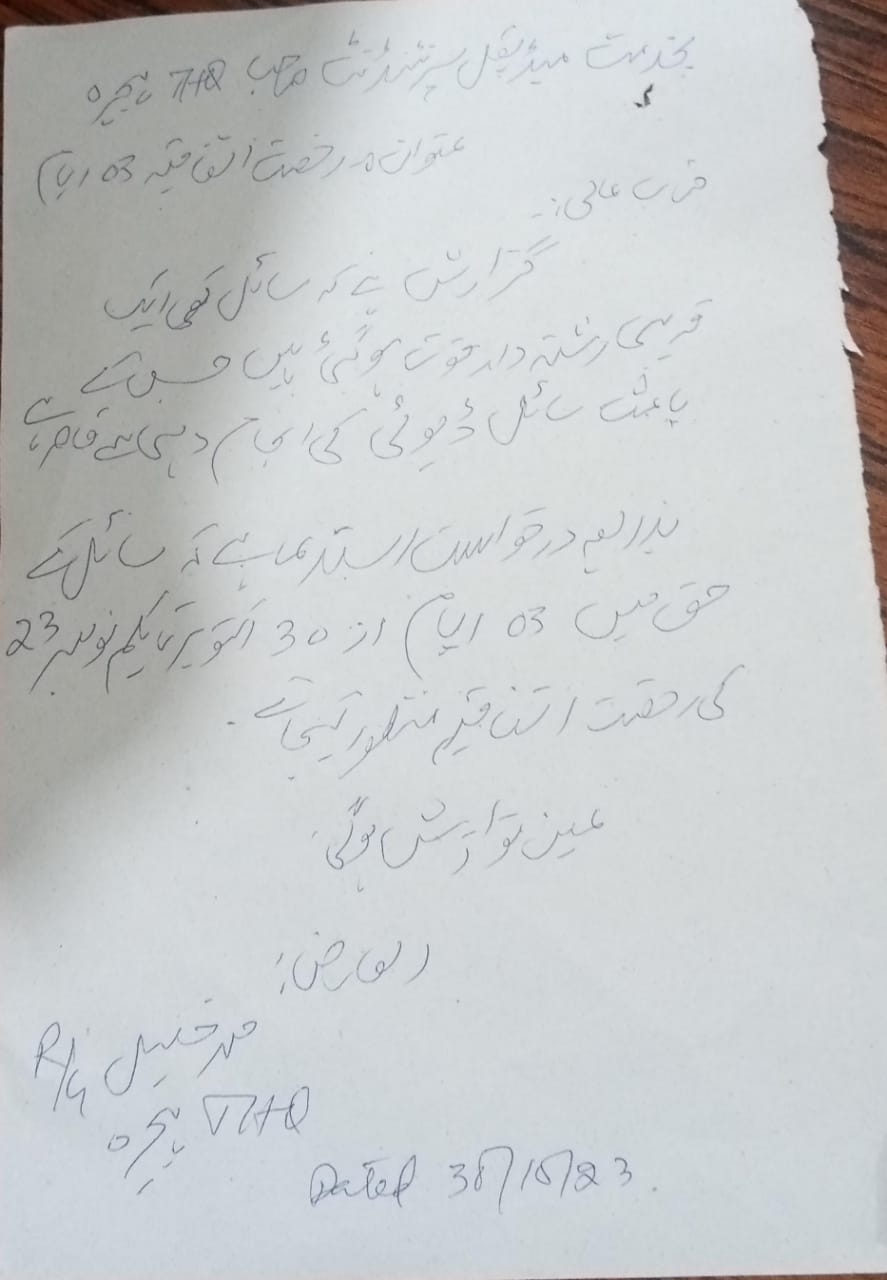 بخدمت میڈیکل سپرنٹنڈنٹ صاحب THQ ہجیرہ
عنوان:۔ رخصت اتفاقیہ 03 ایام
جناب عالی:۔
گزارش ہے کہ سائل کی ایک
قریبی رشتہ دار فوت ہو گئی ہیں جس کے
باعث سائل ڈیوٹی کی انجام دہی سے قاصر ہے
بذریعہ درخواست استدعا ہے کہ سائل کے
حق میں 03 ایام از 30 اکتوبر تا یکم نومبر 23
کی رخصت اتفاقیہ منظور کی جائے۔
عین نوازش ہوگی
العارض:
محمد خلیل R/G
THQ ہجیرہ
Dated 30/10/23.